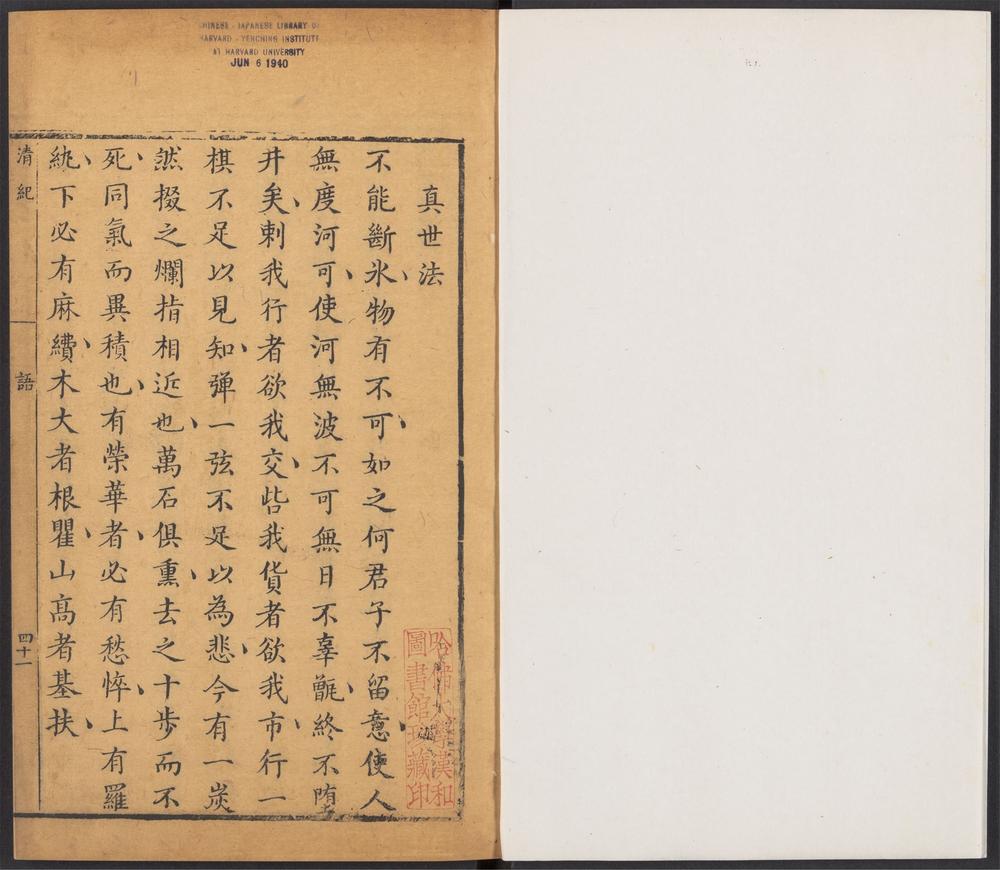 CHINESE - JAPANESE LIBRARY OF
HARVARD - YENCHING INSTITUTE
AT HARVARD UNIVERSITY
JUN 6 1940
真世法
不能斷氷物有不可如之何君子不留意使人
無度河可使河無波不可無日不辜甑終不堕
井矣刺我行者欲我交呰我貨者欲我市行一
棋不足以見知弾一弦不足以為悲今有一炭
然掇之爛指相近也萬石俱熏去之十步而不
死同氣而異積也有榮華者必有愁悴上有羅
紈下必有麻䌇木大者根瞿山高者基扶
清紀
語
四十一
哈佛大學漢和
圖書館珍藏印